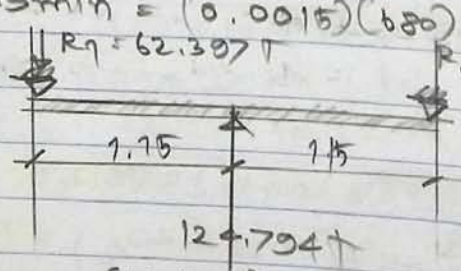 smin = (0.0015)(680)
R1 = 62.397 T R
1.15 1.15
124.794 T